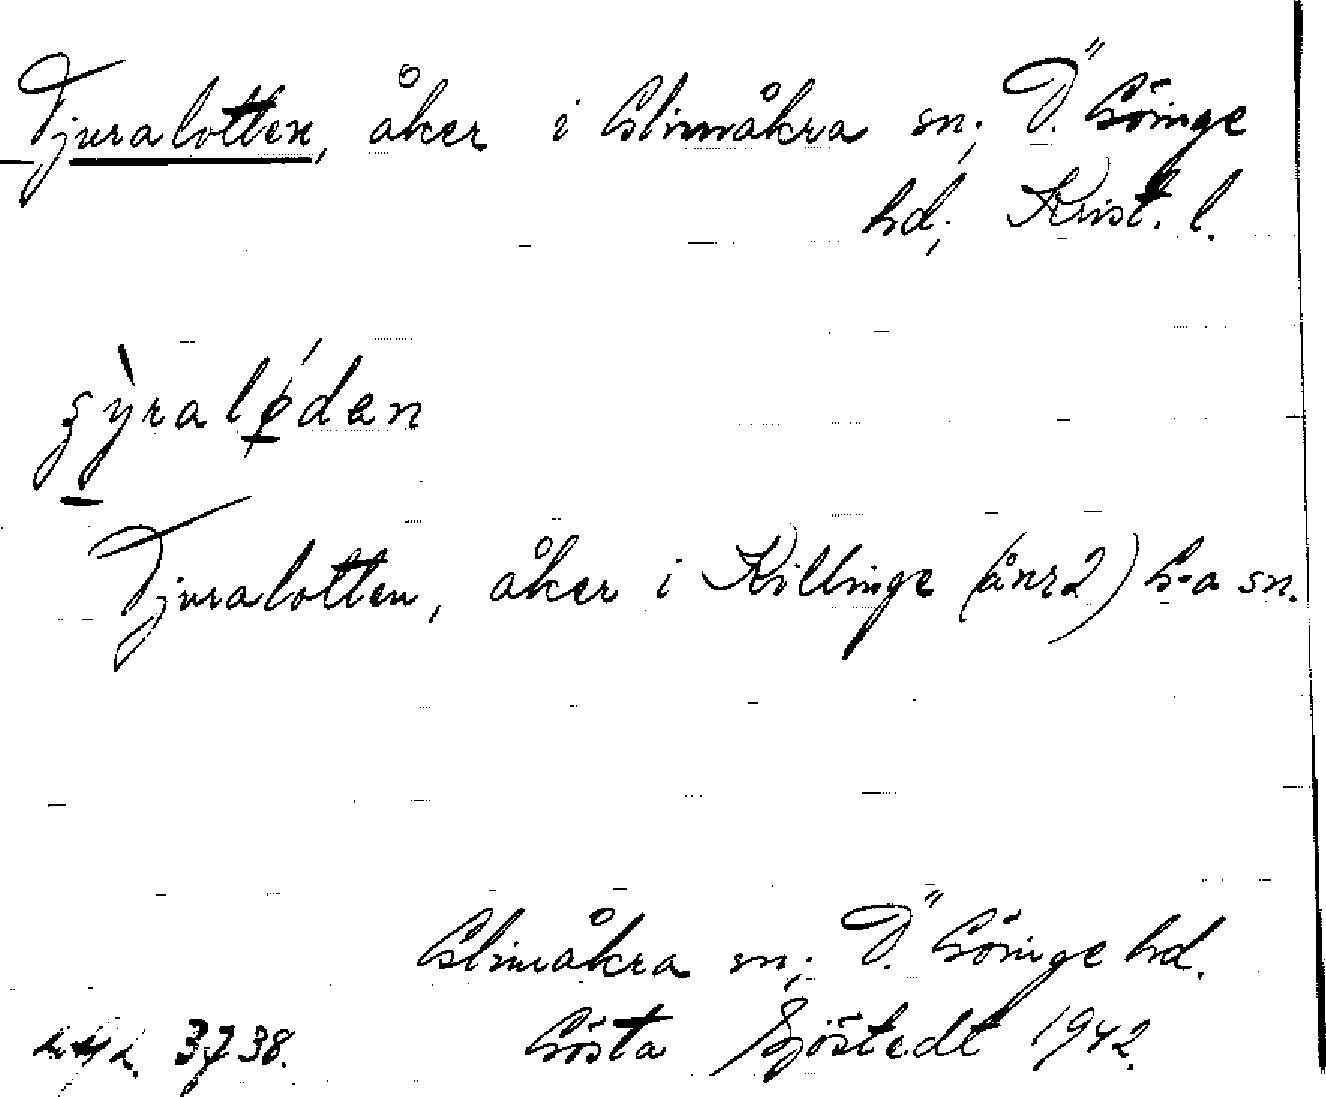 Djuralotten, åker i Glimåkra sn; Ö. Göinge
hd; Krist. l.
ʒỳralǫ́dan
Djuralotten, åker i Killinge (ånr2) G-a sn.
Glimåkra sn; Ö. Göinge hd.
3738. Gösta Sjöstedt 1942.